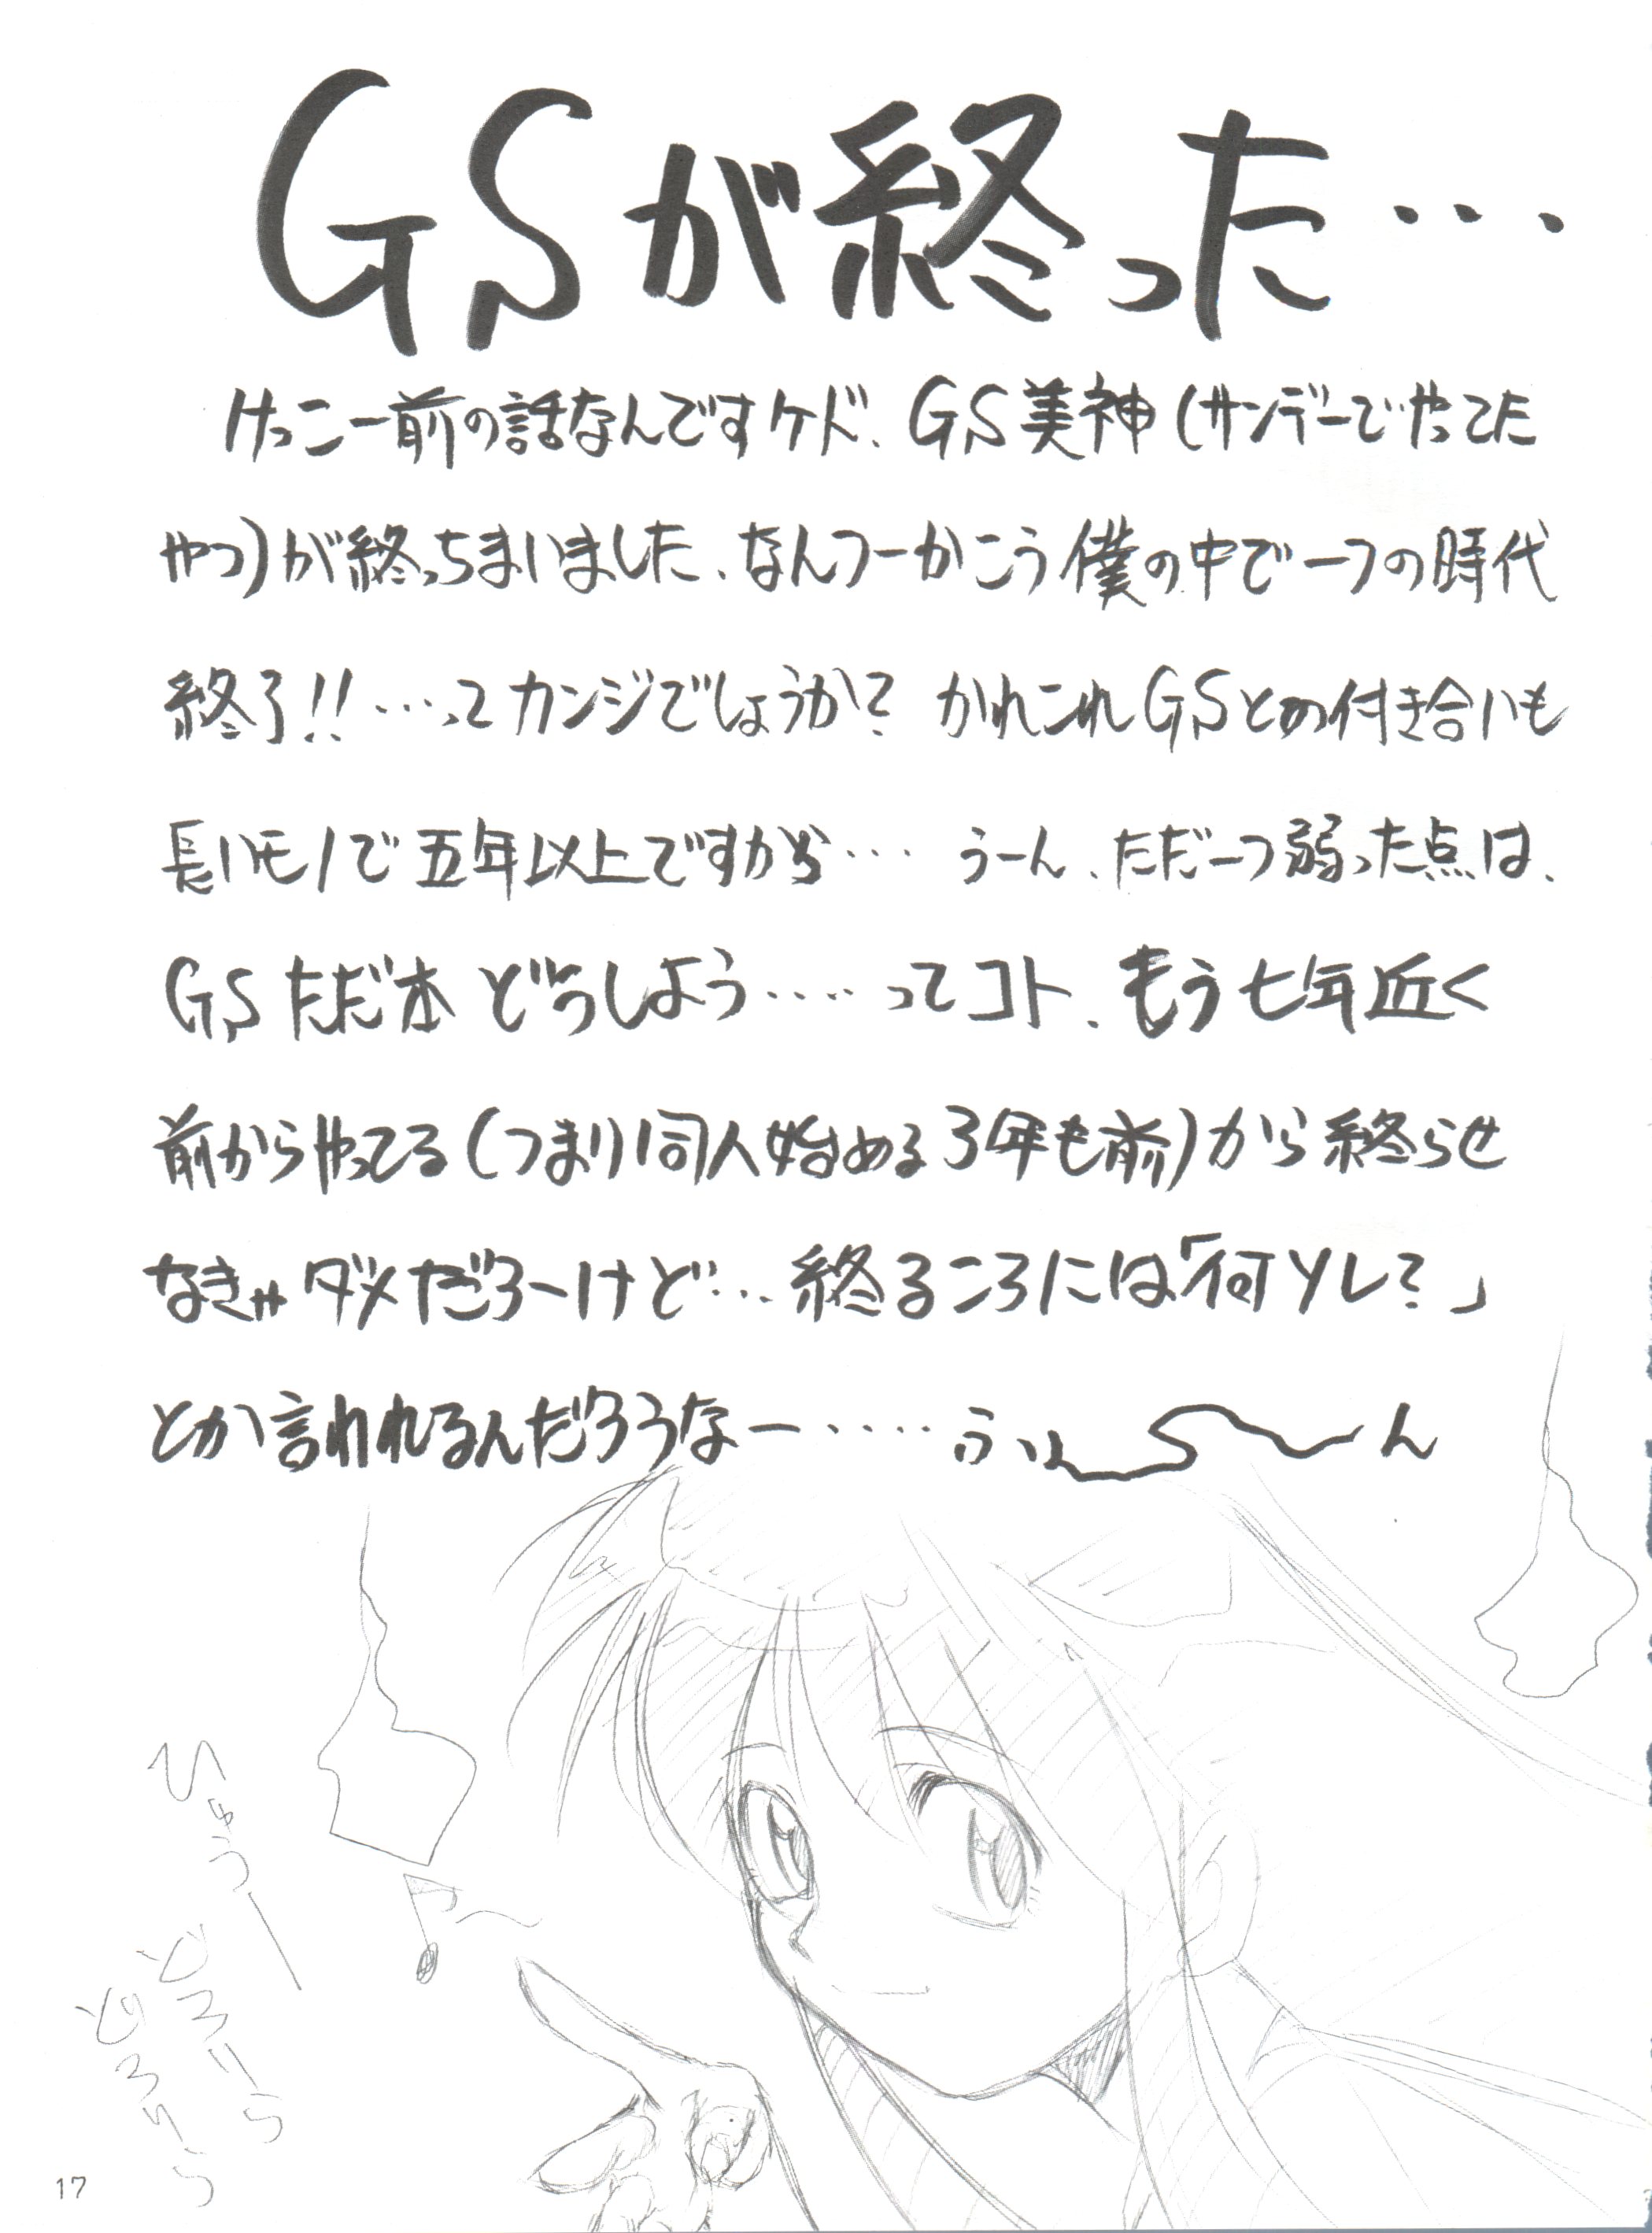 GSが終った…
けっこー前の話なんですケド、GS美神(サンデーでやってた
やつ)が終っちまいました、なんつーかこう僕の中で一つの時代
終了!!…ってカンジでしょうか? かれこれGSとの付き合いも
長いモノで五年以上ですから… うーん、ただ一つ弱った点は、
GSただ本どうしよう……ってコト、もう七年近く
前からやってる(つまり同人始める3年も前)から終らせ
なきゃダメだろーけど…終るころには「何ソレ?」
とか言われるんだろうなー…… ふぃ〜〜ん
ひゅうー
どろりら
どろりら
17